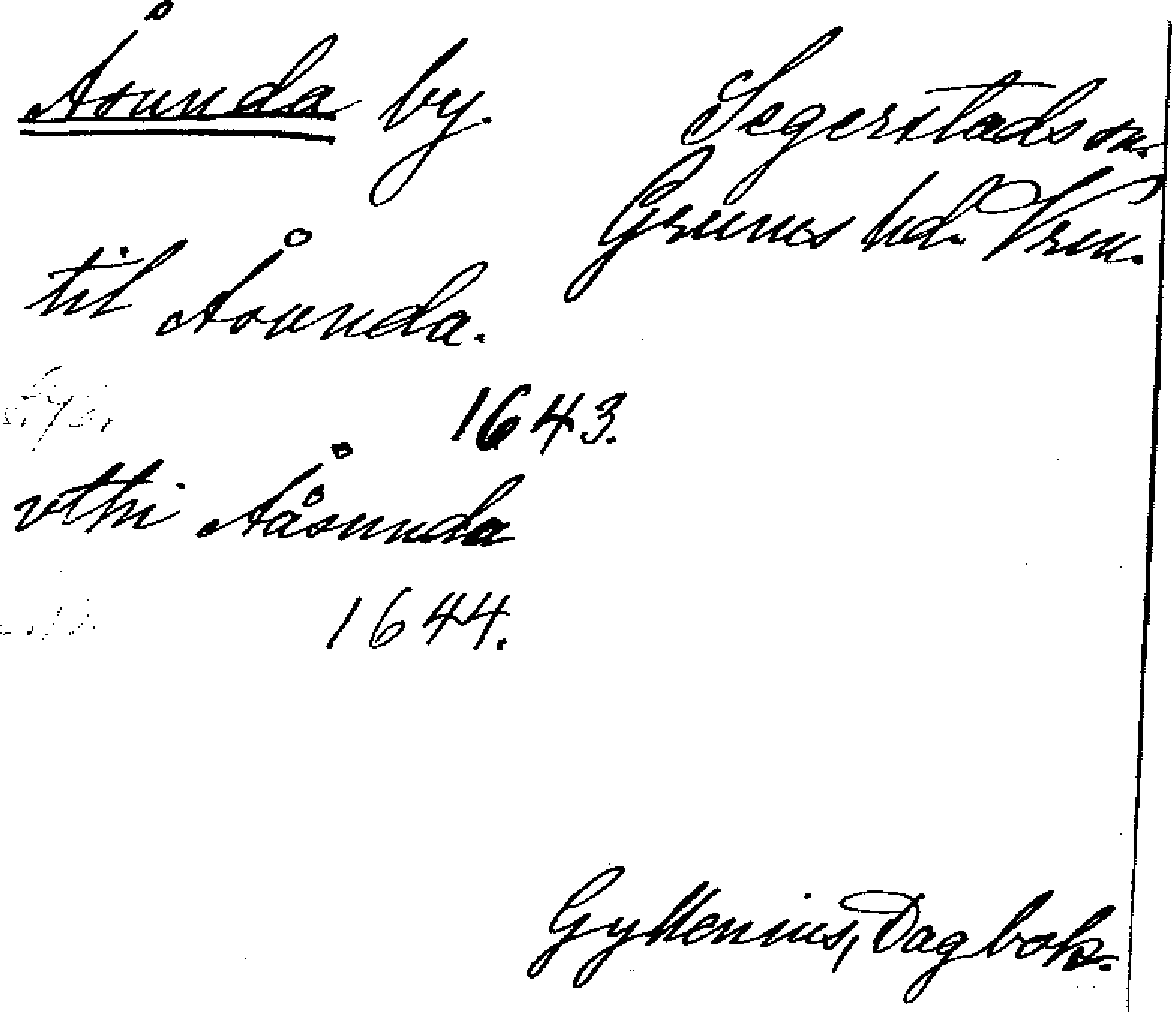 Åsunda by.
Segerstads sn.
Grums hd. Vrm.
til Åsunda.
1643.
vthi Ååsunda
1644.
Gyllenius, Dagbok.